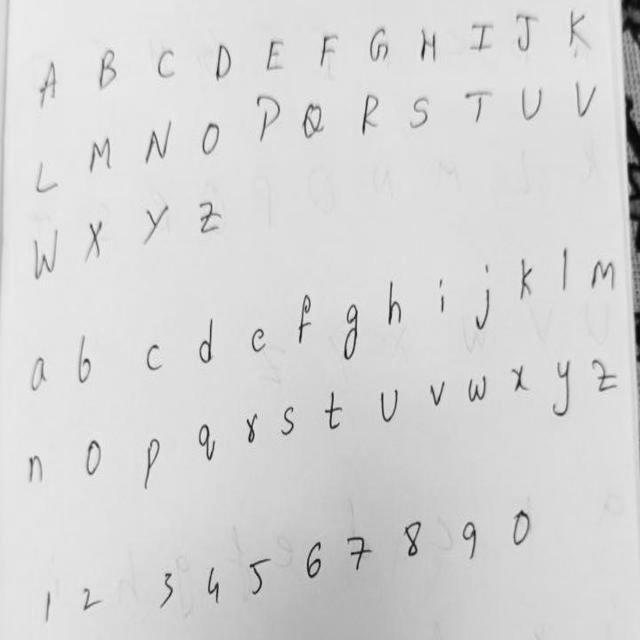 A B C D E F G H I J K
L M N O P Q R S T U V
W X Y Z
a b c d e f g h i j k l m
n o p q r s t u v w x y z
1 2 3 4 5 6 7 8 9 0